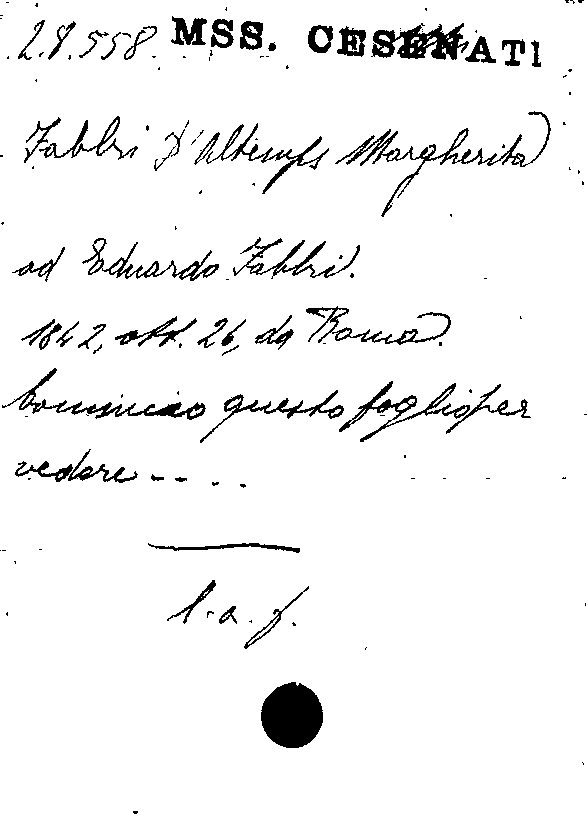 28.558 MSS. CESENATI
Fabbri D'Altemps Margherita
ad Eduardo Fabbri.
1842, ott. 26, da Roma.
Comincio questo foglio per
vedere - - . .
l. a. f.